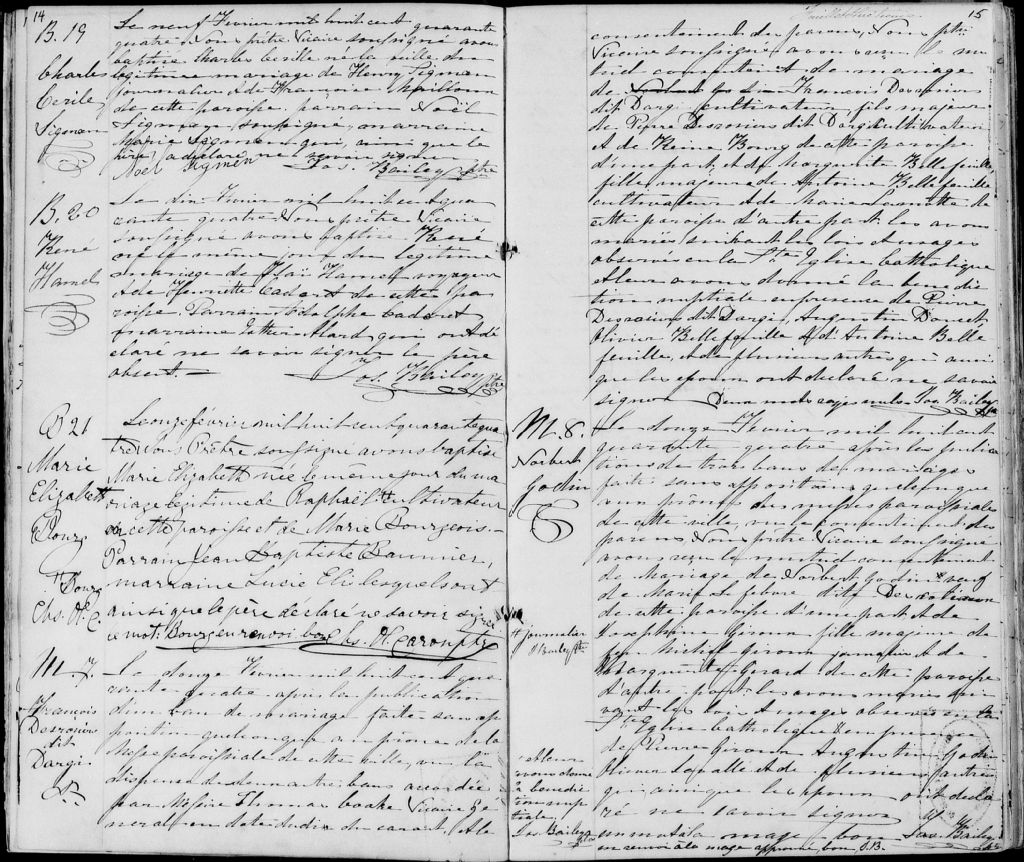 14
B. 19
Charles
Cerile
Sigmen
Le neuf Février mil huit cent quarante
quatre Nous prêtre Vicaire soussigné avons
baptisé Charles Cerille né la veille du
légitime mariage de Henry Sigman
journalier & de Françoise
de cette paroisse parrain Noël
Sigman soussigné, marraine
Marie Sigmen qui, ainsi que le
père, a déclaré ne savoir signer
Noël Sigmen Jos. Bailey Ptre
B. 20
René
Hamel
Le dix Février mil huit cent qua
rante quatre Nous prêtre Vicaire
soussigné avons baptisé René
né le même jour du légitime
mariage de Hamel voyageur
& de Henriette Cadoret de cette pa
roisse. Parrain Adolphe Cadoret
marraine Catherine Hard qui ont dé
claré ne savoir signer le père
absent. — Jos. Bailey Ptre
B 21
Marie
Elizabeth
Bourg
Bourg
Chs. O. C.
Le onze février mil huit cent quarante qua
tre Nous Prêtre soussigné avons baptisé
Marie Elizabeth née le même jour du ma
riage légitime de Raphaël cultivateur
de cette paroisse et de Marie Bourgeois. —
Parrain Jean Baptiste Baumier,
marraine Lucie Elie lesquels ont
ainsi que le père déclaré ne savoir signer
le mot: Bourg en renvoi bon Chs. O. Caron Ptr
M 7.
François
Desrosiers
dit
Dargi
Le douze Février mil huit cent qua
rante quatre après la publication
d'un ban de mariage faite sans op
position quelconque au prône de la
Messe paroissiale de cette ville, vu la
dispense de deux autres bans accordée
par Messire Thomas Cooke Vicaire Gé
néral en date du dix du courant, & le
15
consentement des parens, Nous ptre
Vicaire soussigné avons reçu le mu
tuel consentement de mariage
de François Desrosiers
dit Dargi cultivateur, fils majeur
de Pierre Desrosiers dit Dargi cultivateur
& de Reine Bourg de cette paroisse
d'une part, & de Marguerite Bellefeuille,
fille majeure de Antoine Bellefeuille
cultivateur & de Marie Lamotte de
cette paroisse d'autre part & les avons
mariés suivant les lois & usages
observés en la Ste Eglise Catholique
& leur avons donné la bénédic
tion nuptiale en présence de Pierre
Desrosiers dit Dargi, Augustin Doucet,
Olivier Bellefeuille & d'Antoine Belle
feuille, & de plusieurs autres qui ainsi
que les époux ont déclaré ne savoir
signer. Deux mots rayés nuls Jos. Bailey Ptre
M. 8.
Norbert
Godin
Le douze Février mil huit cent
quarante quatre après les publica
tions de trois bans de mariage
faite sans opposition quelconque
aux prônes des messes paroissiales
de cette ville, vu le consentement des
parens Nous prêtre Vicaire soussigné
avons reçu le mutuel consentement
de Mariage de Norbert Godin veuf
de Marie Lefebvre dite Descoteaux
de cette paroisse d'une part & de
Josephine Giroux fille majeure de
feu Michel Giroux journalier & de
Marguerite Gerard de cette paroisse
d'autre part & les avons mariés sui
vant les lois & usages observés en la
Ste Eglise Catholique en présence
de Pierre Giroux Augustin Godin
Olivier Lavallé & de plusieurs autres
qui, ainsi que les époux ont décla
ré ne savoir signer
un mot à la marge bon Jos. Bailey
un renvoi à la marge approuvé bon J.B. Ptre
# journalier
J Bailey Ptre
& leur
avons donné
la bénédic
tion nup
tiale.
Jos Bailey
Ptre